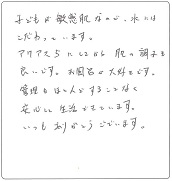 子どもが敏感肌なので、水には
こだわっています。
アクアス5にしてから肌の調子も
良いです。お風呂が大好きです。
管理もほとんどすることなく
安心して生活できています。
いつもありがとうございます。